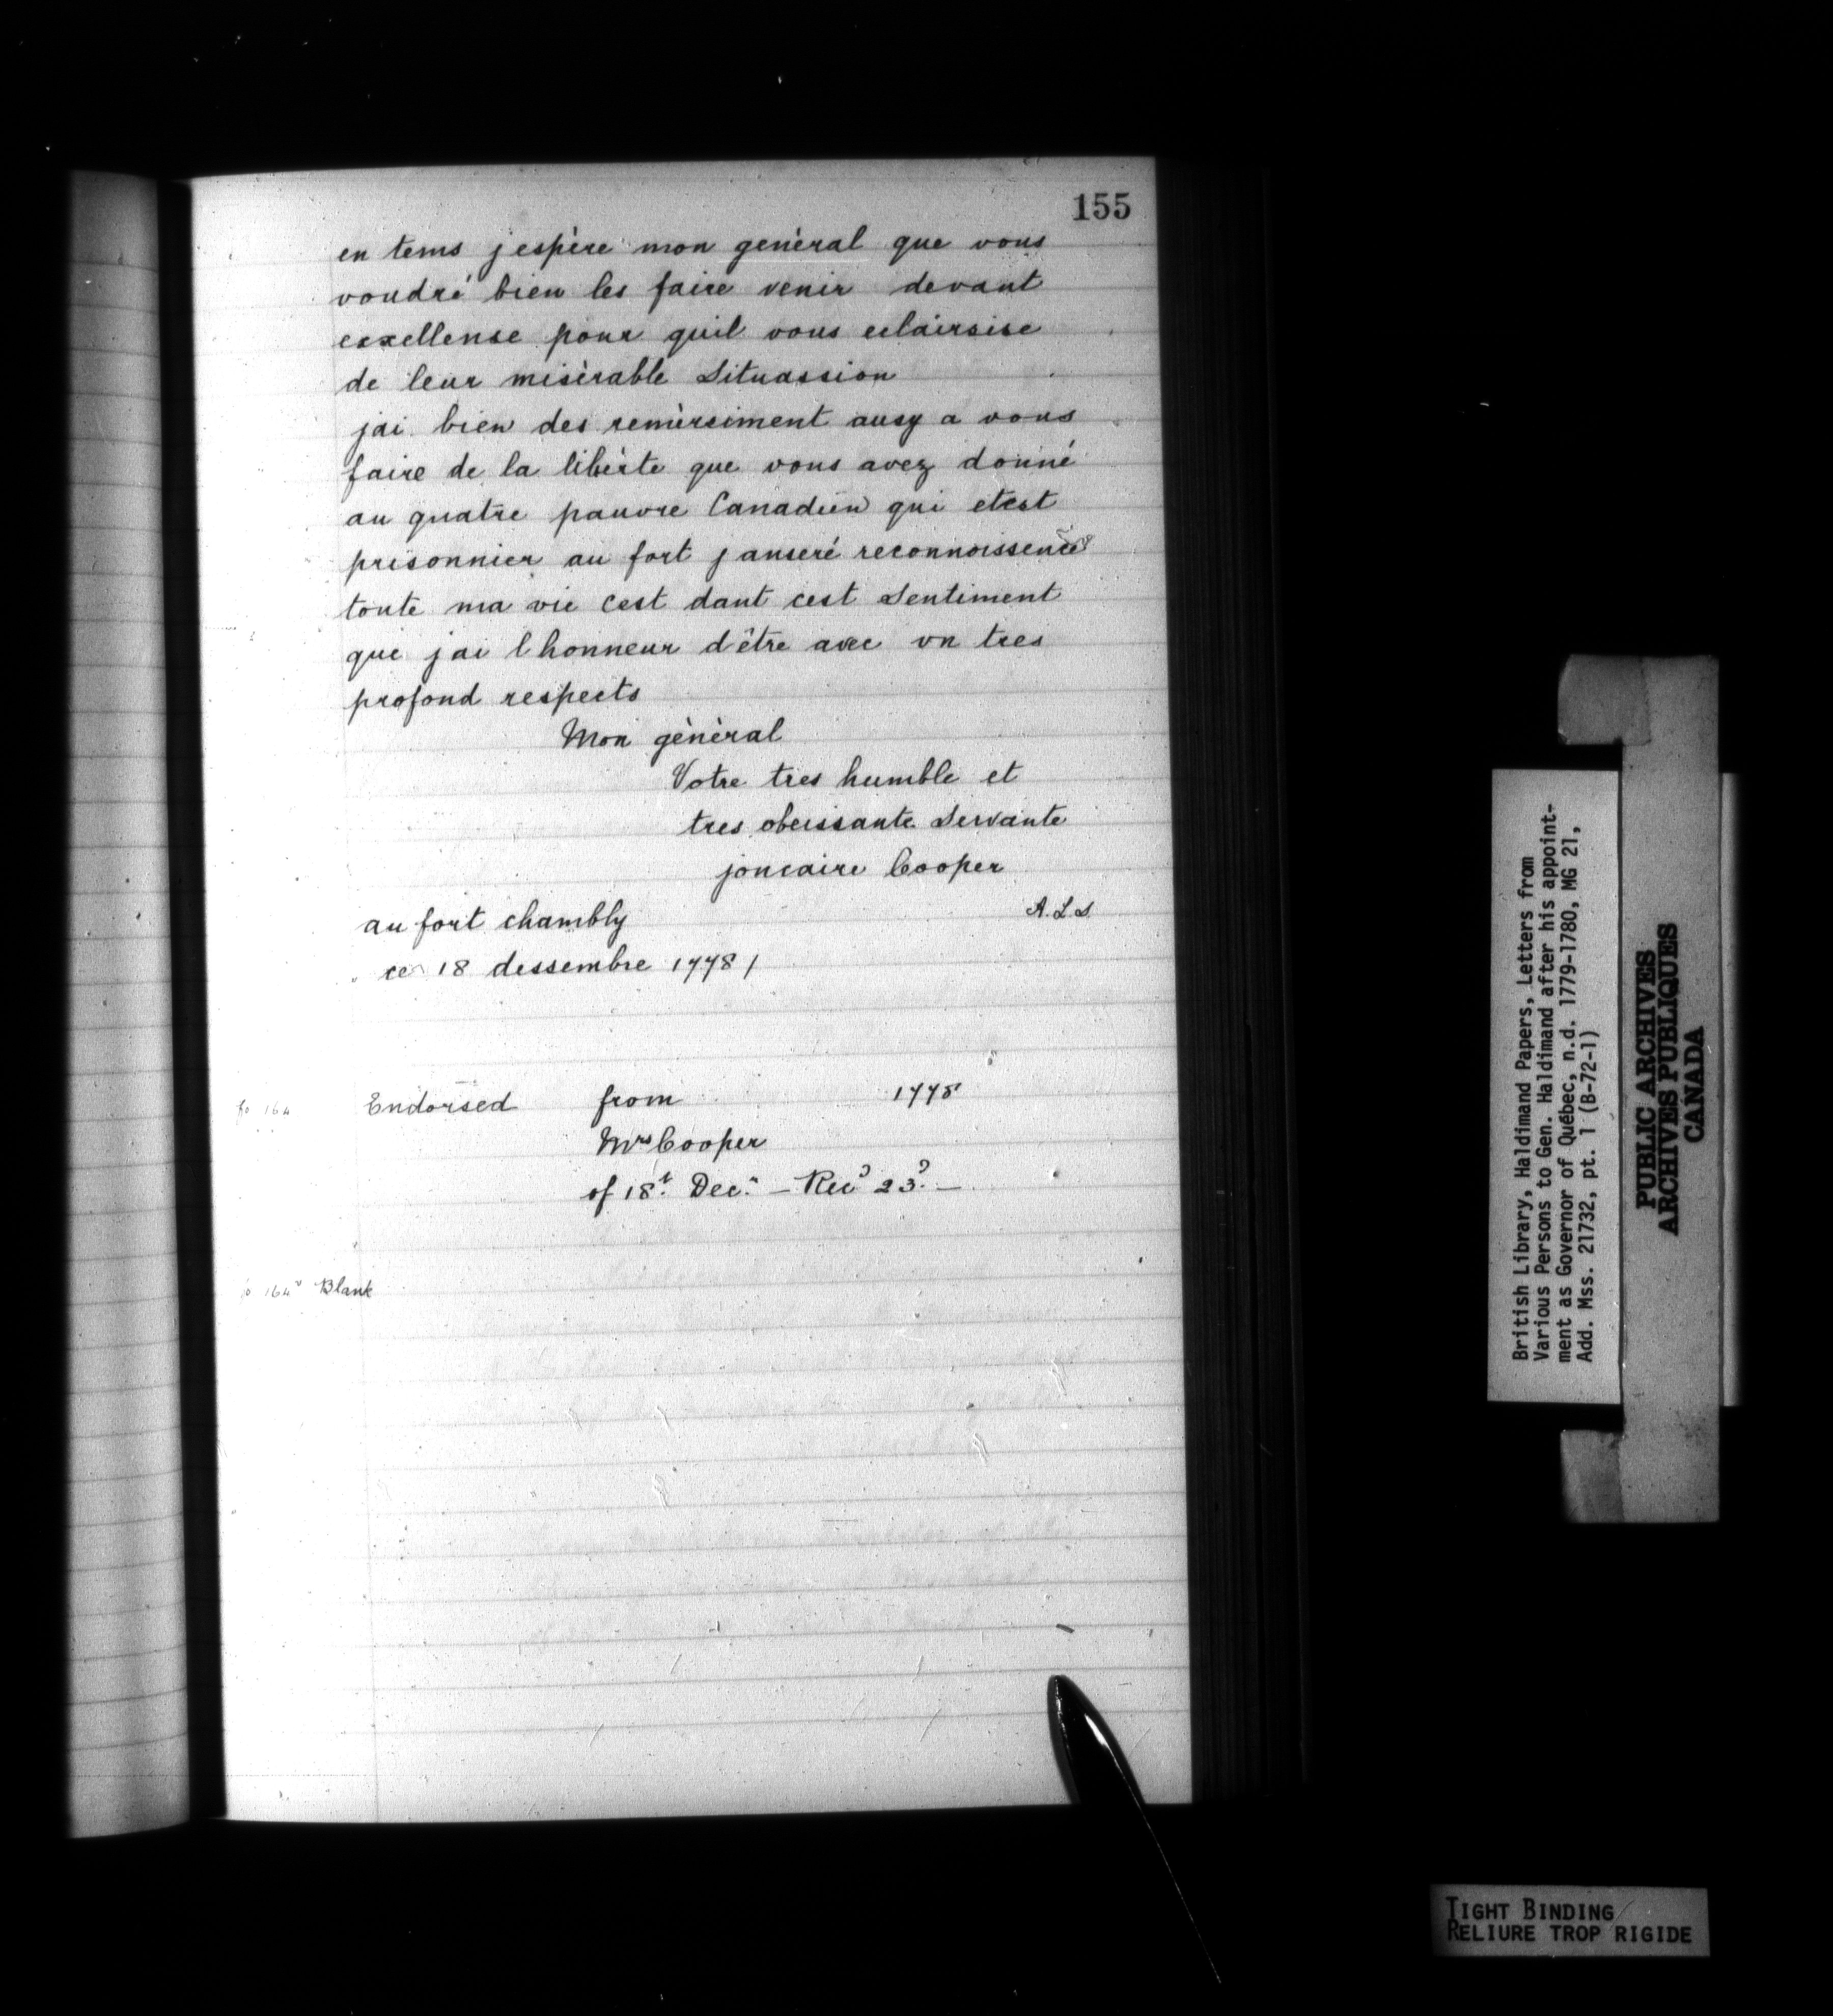 155
en tems j espère mon genèral que vous
voudré bien les faire venir devant
exxellense pour quil vous eclairsise
de leur misèrable Situassion
jai bien des remèrsiment ausy a vous
faire de la libèrte que vous avez donné
au quatre pauvre Canadien qui etest
prisonnier au fort j anseré reconnoissence
toute ma vie cest dant cest Sentiment
que jai l honneur d'être avec un tres
profond respects
Mon gènèral
Votre tres humble et
tres obeissante Servante
joncaire Cooper
A.L.S.
au fort chambly
ce 18 dessembre 1778 /
fo 164 Endorsed from 1778
Mrs Cooper
of 18t. Decr. — Recd 23d. —
fo 164v Blank
British Library, Haldimand Papers, Letters from
Various Persons to Gen. Haldimand after his appoint-
ment as Governor of Québec, n.d. 1779-1780, MG 21,
Add. Mss. 21732, pt. 1 (B-72-1)
PUBLIC ARCHIVES
ARCHIVES PUBLIQUES
CANADA
TIGHT BINDING
RELIURE TROP RIGIDE